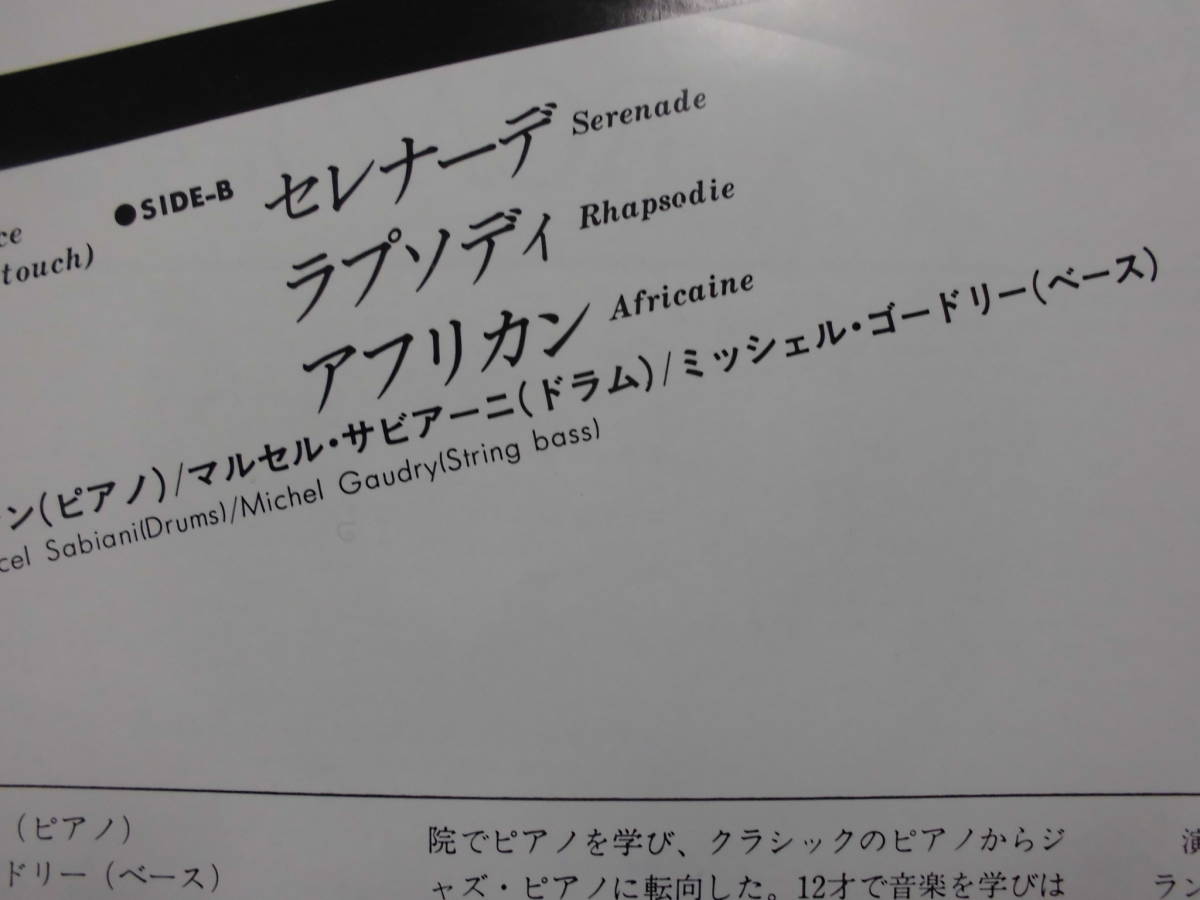 ce
touch)
●SIDE-B
セレナーデ Serenade
ラプソディ Rhapsodie
アフリカン Africaine
ン(ピアノ)/マルセル・サビアーニ(ドラム)/ミッシェル・ゴードリー(ベース)
cel Sabiani(Drums)/Michel Gaudry(String bass)
(ピアノ)
ドリー(ベース)
院でピアノを学び、クラシックのピアノからジ
ャズ・ピアノに転向した。12才で音楽を学びは
演
ラン